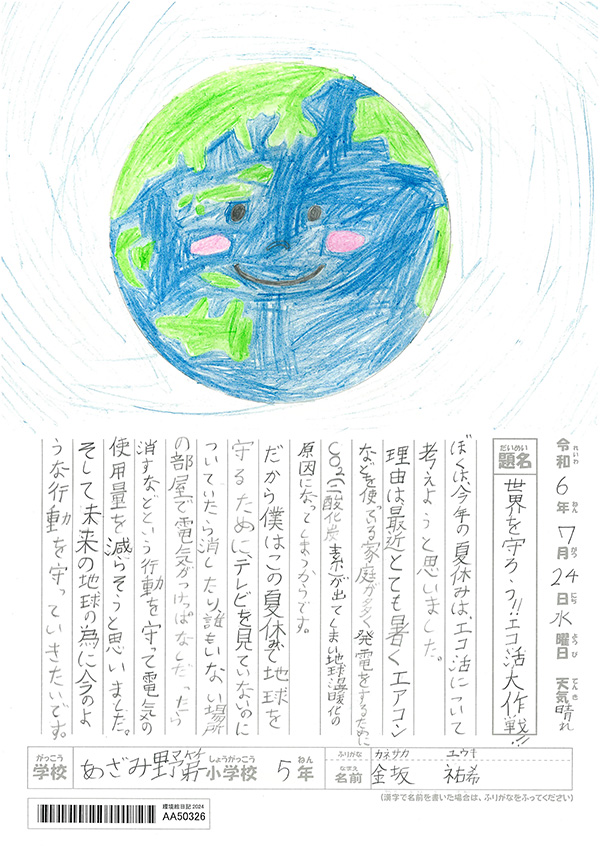 令和 れいわ 6年 ねん 7月 がつ 24日 にち 水曜日 ようび 天気 てんき 晴れ
題名 だいめい 世界を守ろう!!エコ活大作戦!!
ぼくは、今年の夏休みは、エコ活について
考えようと思いました。
理由は最近とても暑くエアコン
などを使っている家庭が多く発電をするために
CO2(二酸化炭素)が出てしまい地球温暖化の
原因になってしまうからです。
だから僕はこの夏休みで地球を
守るために、テレビを見ていないのに
ついていたら消したり、誰もいない場所
の部屋で電気がつけっぱなしだったら
消すなどという行動を守って電気の
使用量を減らそうと思いました。
そして未来の地球の為に今のよ
うな行動を守っていきたいです。
学校 がっこう あざみ野第一小学校 しょうがっこう 5年 ねん
ふりがな カネサカ ユウキ
名前 なまえ 金坂 祐希
(漢字で名前を書いた場合は、ふりがなをふってください)
環境絵日記2024
AA50326